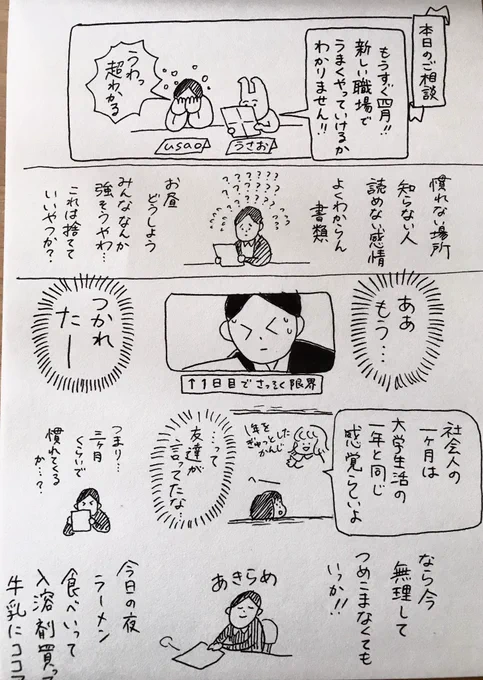 本日のご相談
もうすぐ四月!!
新しい職場で
うまくやっていけるか
わかりません!!
うわっ
超わかる
うさお
usao
慣れない場所
知らない人
読めない感情
よくわからん
書類
?????????
お昼
どうしよう
みんななんか
強そうやわ…
これは捨てて
いいやつか?
ああ
もう…
つかれ
たー
↑1日目でさっそく限界
社会人の
一ヶ月は
大学生活の
一年と同じ
感覚らしいよ
1年を
ぎゅっとした
かんじ
へー
…って
友達が
言ってたな…
つまり…
三ヶ月
くらいで
慣れてくる
か…?
なら今
無理して
つめこまなくても
いっか!!
あきらめ
今日の夜
ラーメン
食べいって
入溶剤買っ
牛乳にココア